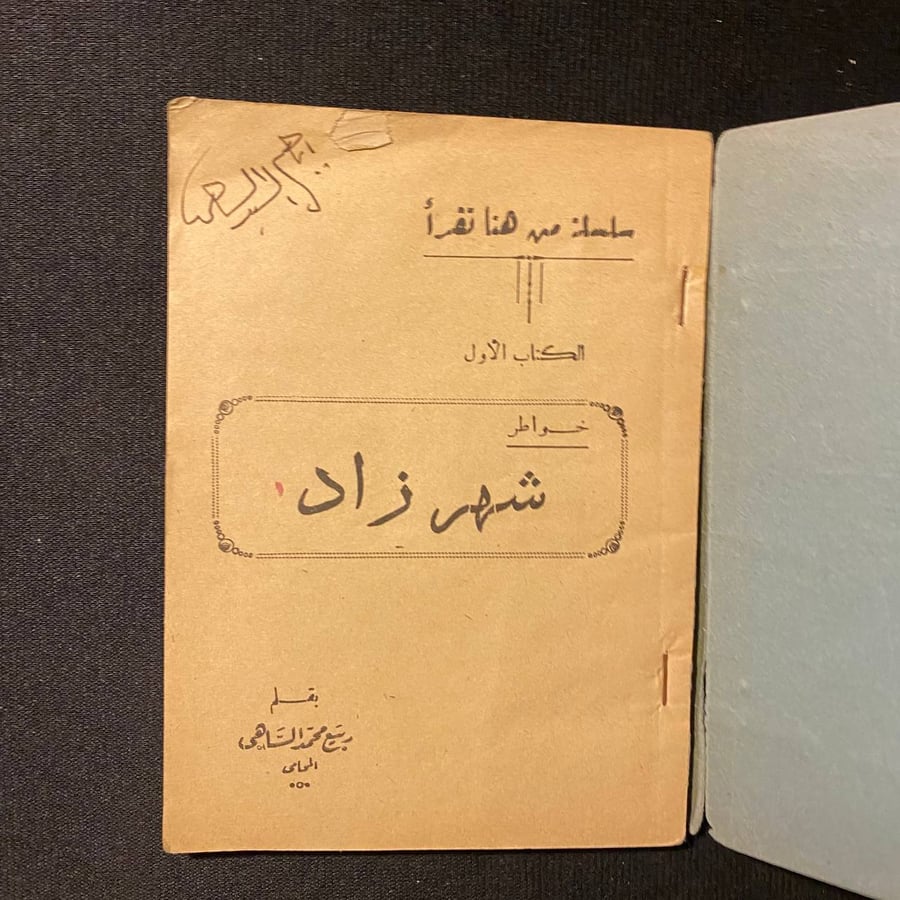 سلسلة من هنا نقرأ
الكتاب الأول
خواطر
شهر زاد
بقلم
ربيع محمد الشاهى
المحامى